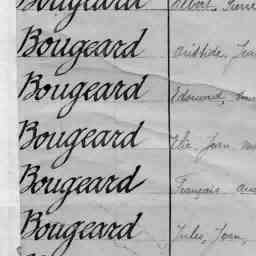 Bougeard Albert, Pierre
Bougeard Aristide, Jean
Bougeard Edouard,
Bougeard Elie, Jean
Bougeard François
Bougeard Jules, Jean,